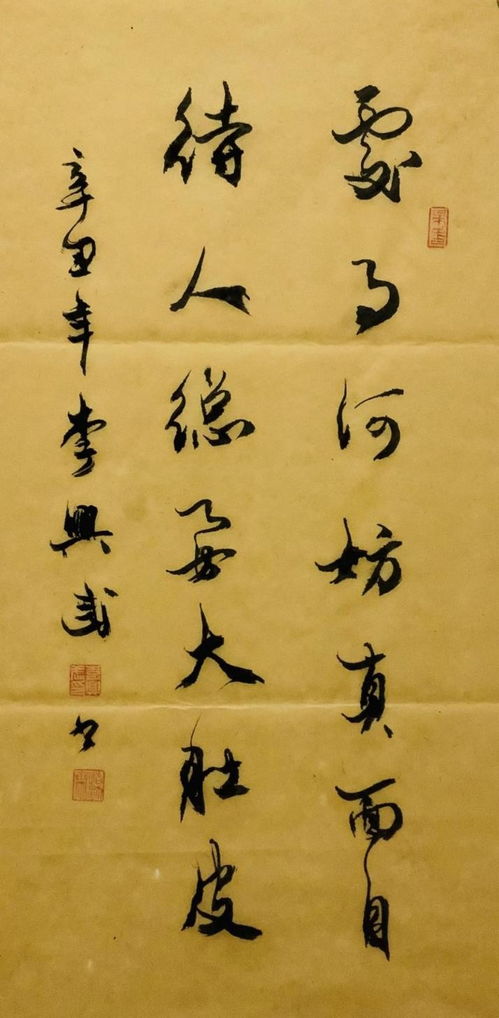 處事何妨真面目
待人總要大肚皮
辛丑年李興武书